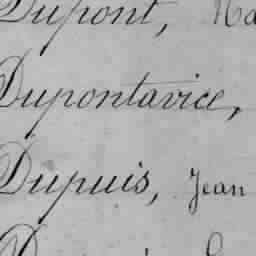 Dupont,
Dupontavice,
Dupuis, Jean